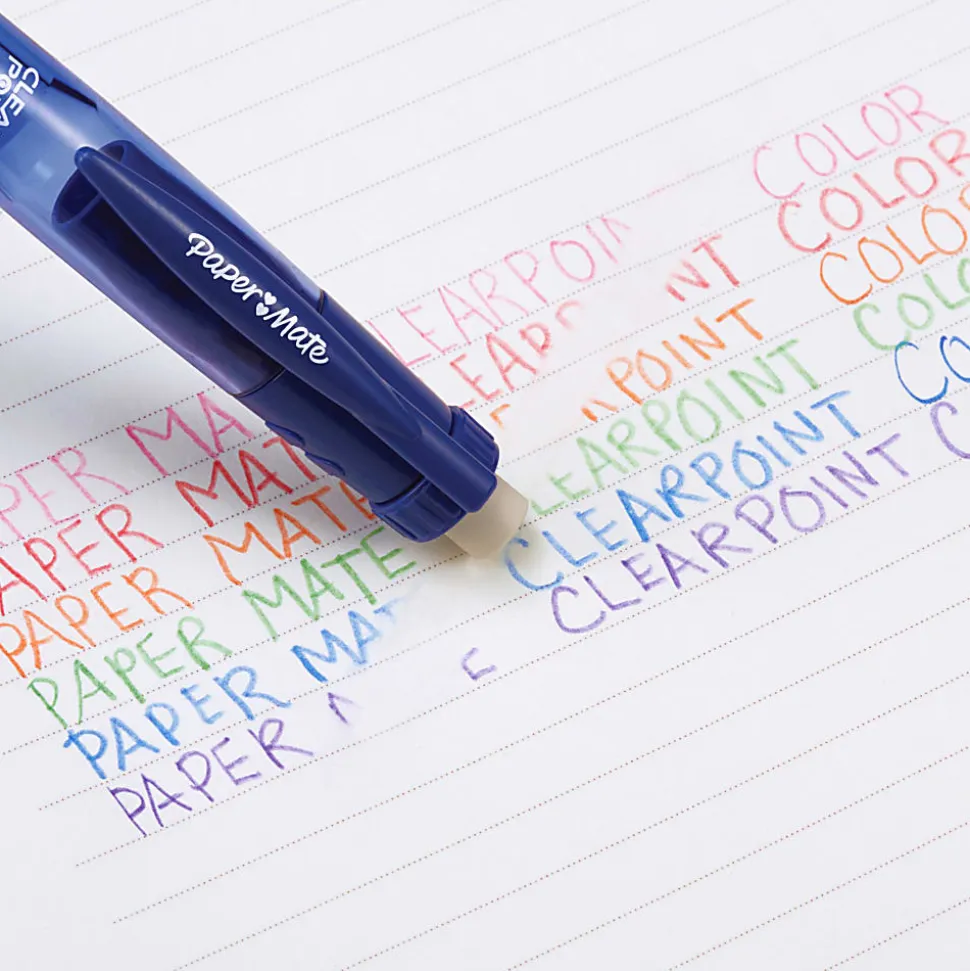 CLEA
PO
Paper Mate
PER MA LEARPOIN COLOR
APER MAT LEAP NT COLOR
PAPER MAT POINT COLO
PAPER MATE LEARPOINT COLO
PAPER MAT CLEARPOINT CO
PAPER CLEARPOINT C